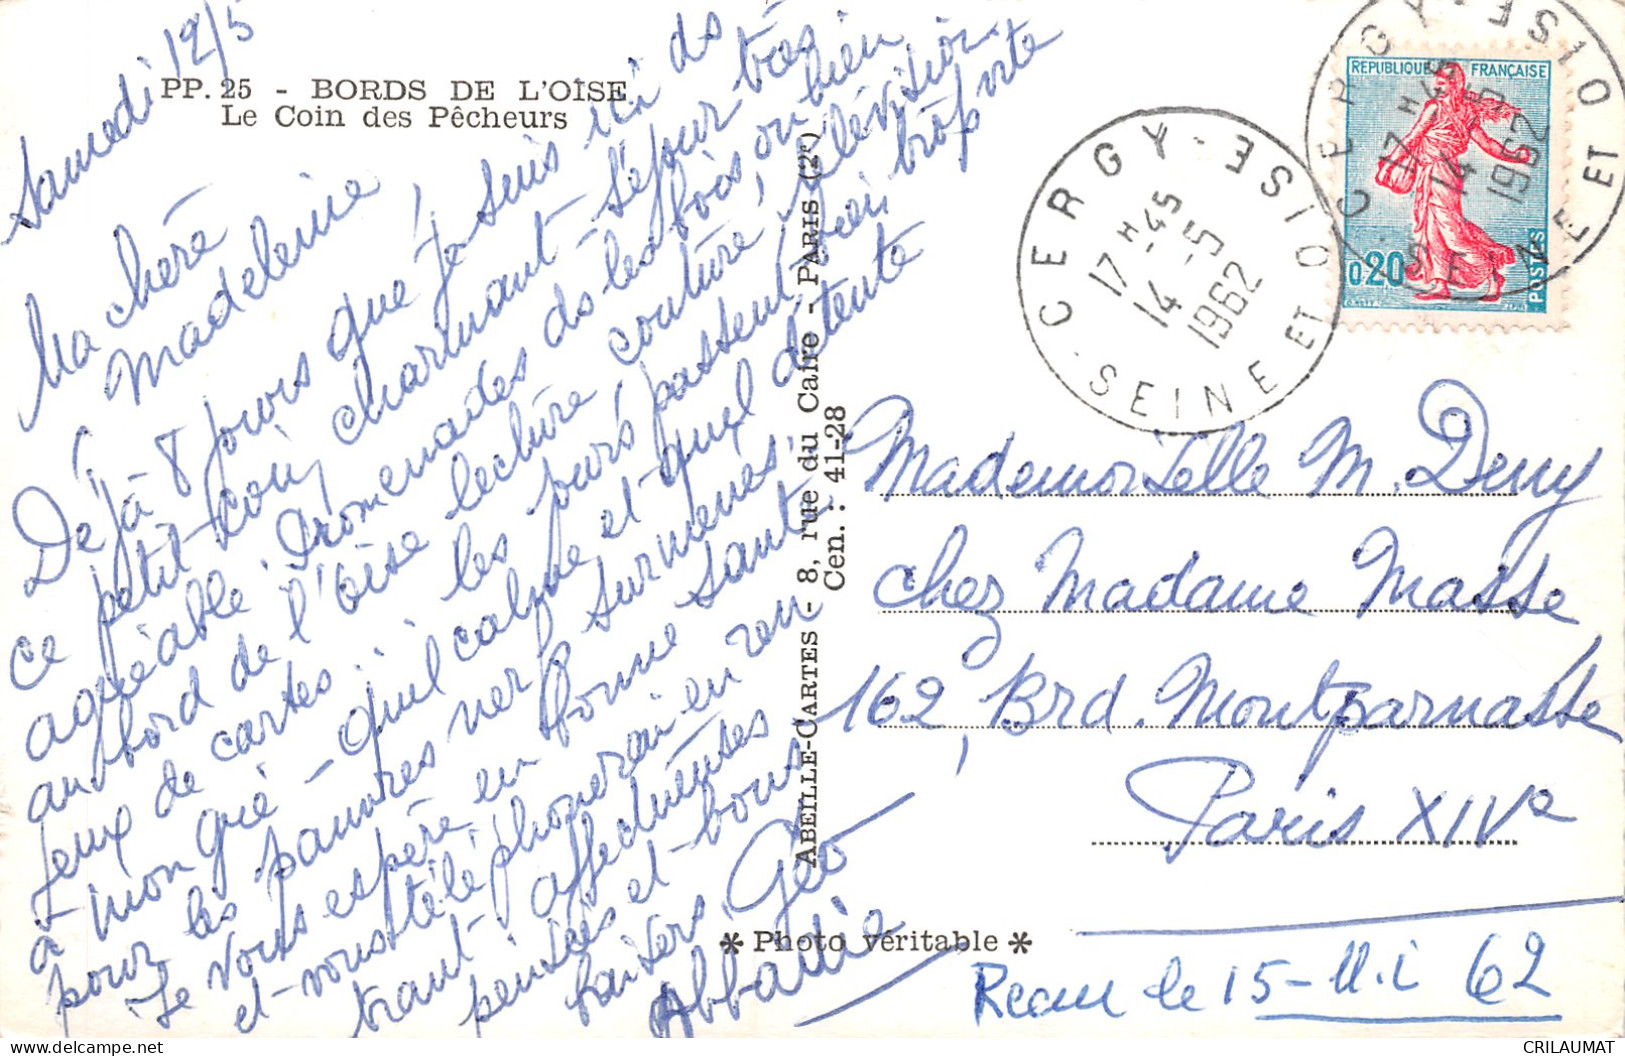 PP. 25 - BORDS DE L'OISE
Le Coin des Pêcheurs
Samedi 12/5
Ma chère
Madeleine,
Déjà 8 jours que je suis ici ds
ce petit coin charmant - séjour très
agréable. Promenades ds les bois, ou bien
au bord de l'Oise lecture, couture, télévision
jeux de cartes : les jours passent bien trop vite
à mon gré - quel calme et quel détente
pour les pauvres nerfs surmenés.
Je vous espère en bonne santé
et vous téléphonerai en ren
trant - affectueuses
pensées et bons
baisers. Géo
Abbadie
ABEILLE-CARTES - 8, rue du Caire - PARIS (2e)
Cen. : 41-28
✻ Photo véritable ✻
CERGY - SEINE ET OISE
17 H 45
14 - 5
1962
CERGY - SEINE ET OISE
17 H 45
14 - 5
1962
REPUBLIQUE FRANÇAISE
0,20
POSTES
Mademoiselle M. Deny
chez Madame Masse
162, Brd. Montparnasse
Paris XIVe
le 15 - 62
CRILAUMAT